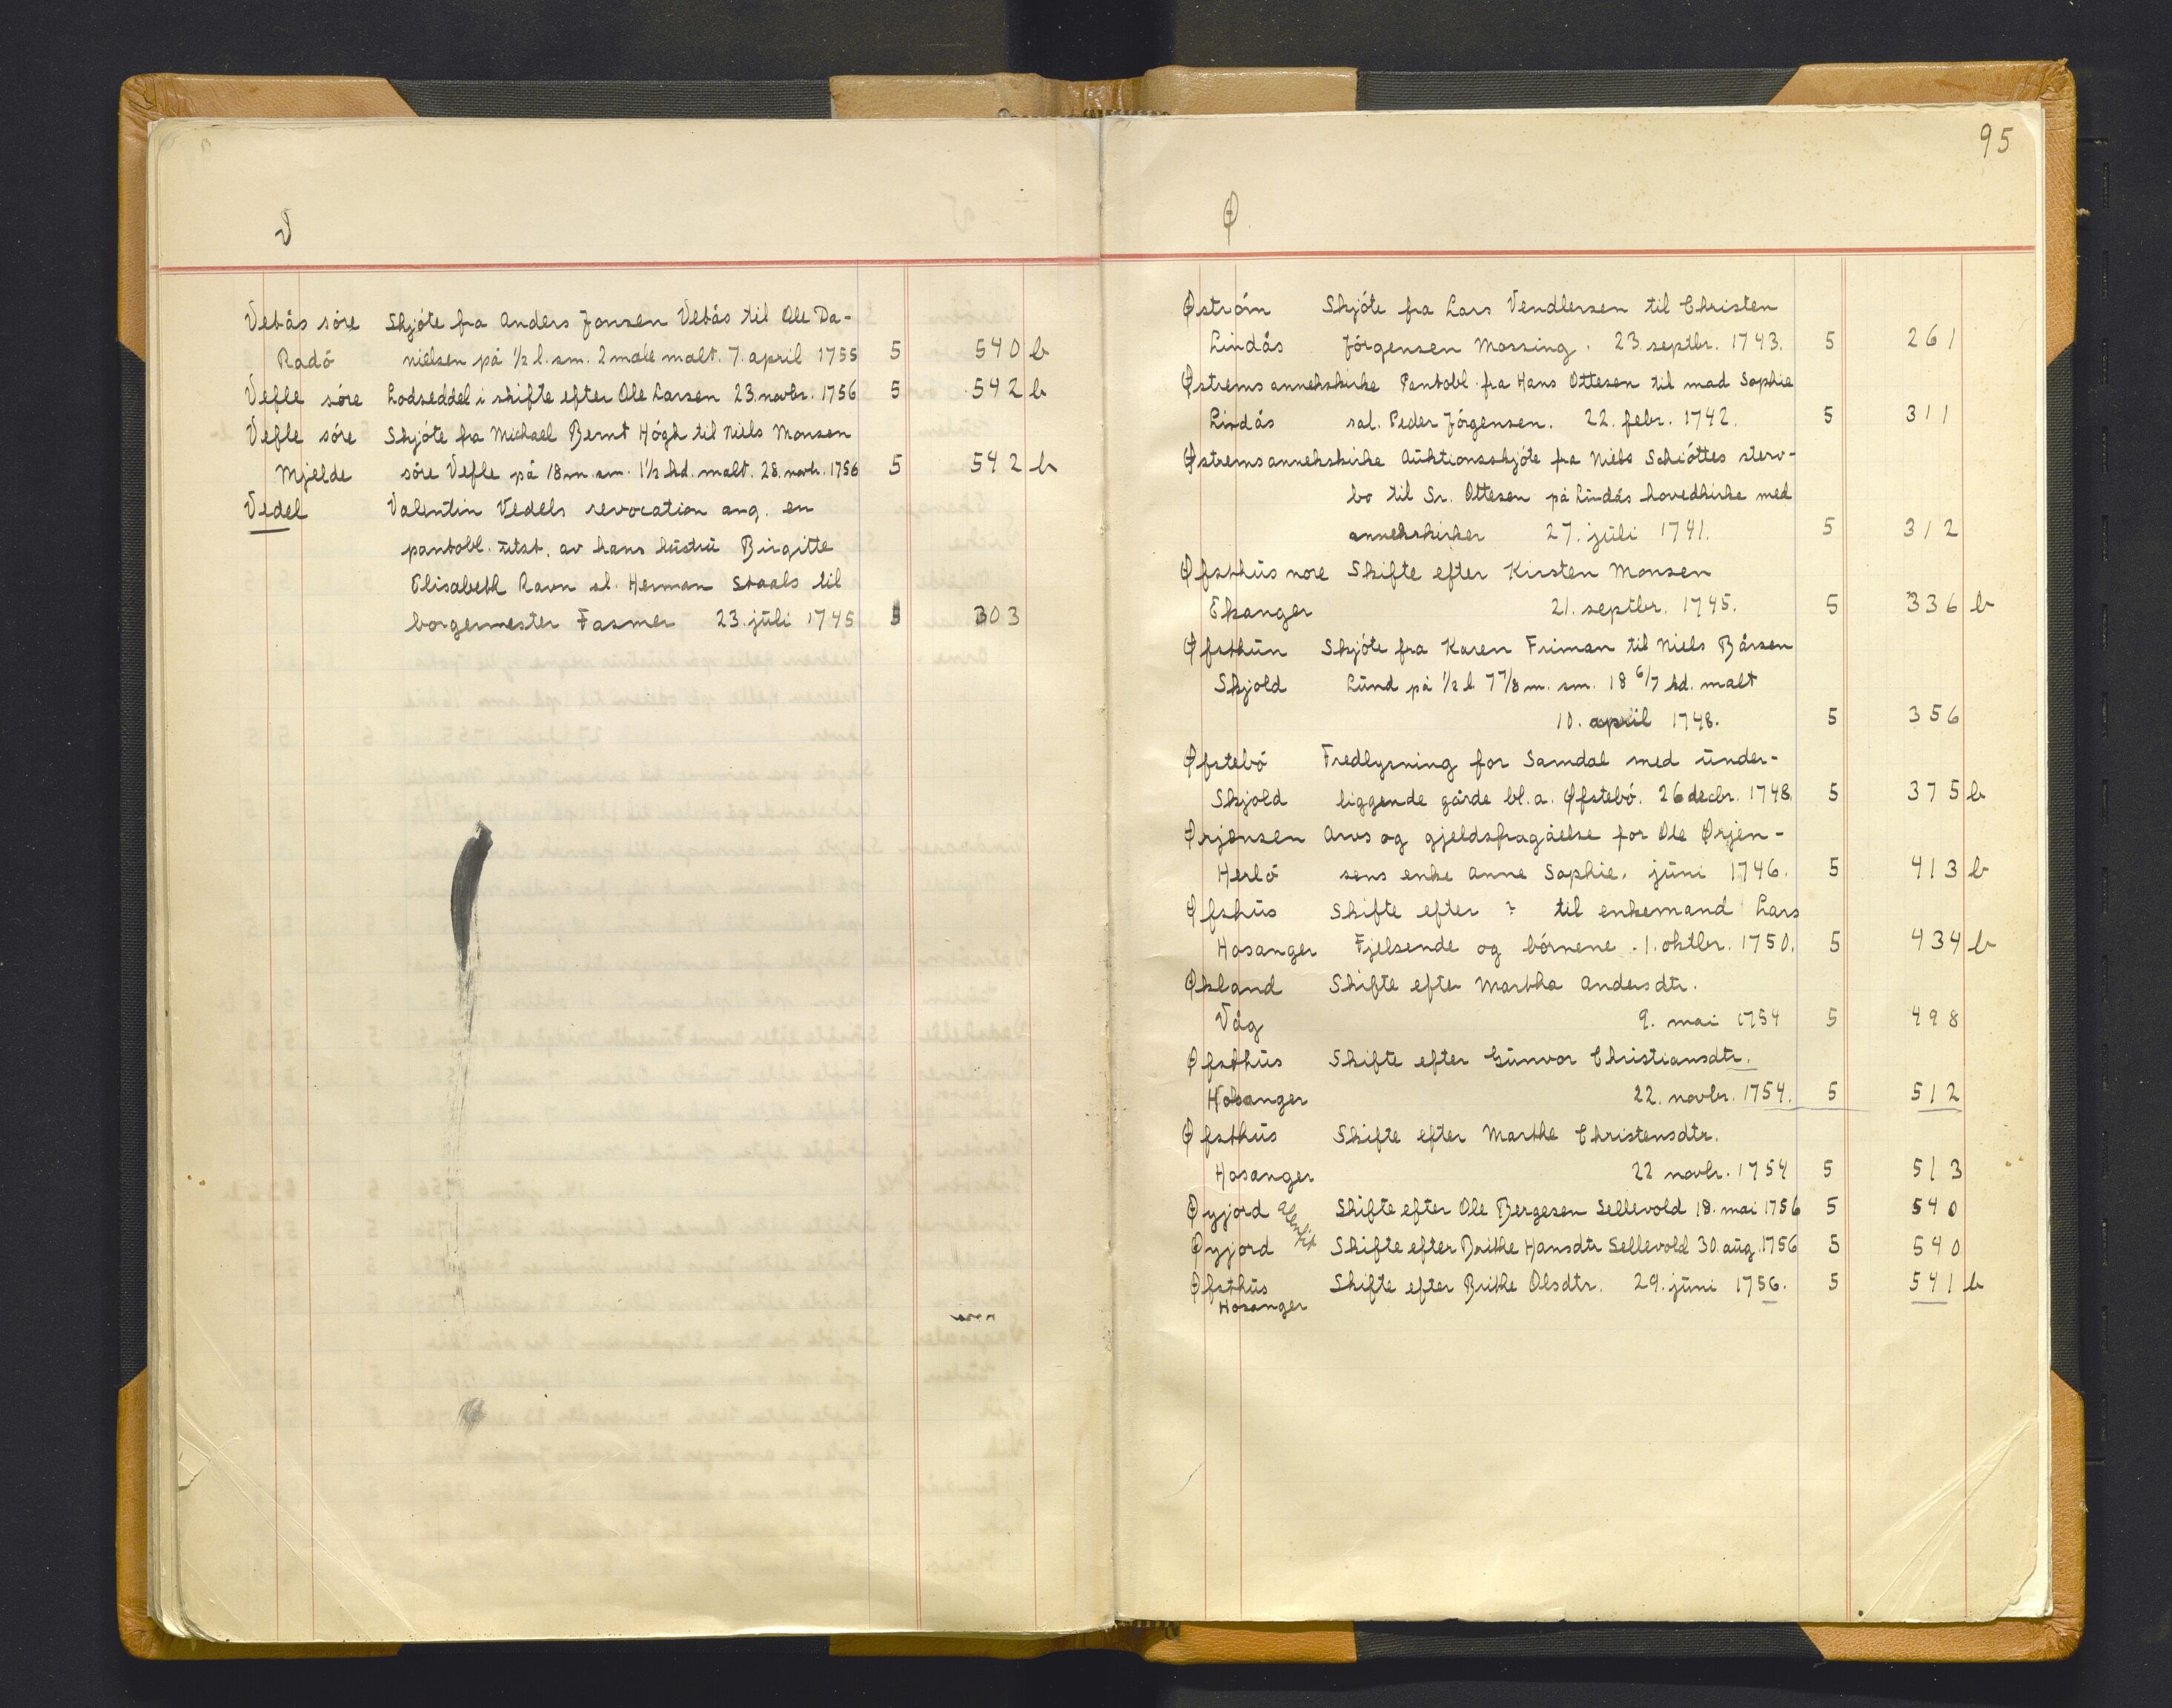 V
Vebås söre Skjöte fra Anders Jonsen Vebås til Ole Da-
Radö nielsen på ½ l. sm. 2 mæle malt. 7. april 1755 5 540 b
Vefle söre Lodseddel i skifte efter Ole Larsen 23. novbr. 1756 5 542 b
Vefle söre Skjöte fra Michael Bernt Högh til Niels Monsen
Mjelde söre Vefle på 18 m. sm. 1½ hd. malt. 28. novbr. 1756 5 542 b
Vedel Valentin Vedels revocation ang. en
pantobl. utst. av hans hustru Birgitte
Elisabeth Ravn sl. Herman Staals til
borgermester Fasmer 23. juli 1745 5 303
95
Ø
Øström Skjöte fra Lars Vendlersen til Christen
Lindås Jörgensen Mossing. 23. septbr. 1743. 5 261
Østrems annekskirke Pantobl. fra Hans Ottesen til mad Sophie
Lindås sal. Peder Jörgensen. 22. febr. 1742. 5 311
Østrems annekskirke Auktionsskjöte fra Niels Schiöttes sterv-
bo til Sr. Ottesen på Lindås hovedkirke med
annekskirker 27. juli 1741. 5 312
Øfsthus nore Skifte efter Kirsten Monsen
Ekanger 21. septbr. 1745. 5 336 b
Øfsthun Skjöte fra Karen Friman til Niels Bårsen
Skjold Lund på ½ l 7 7/8 m. sm. 18 6/7 hd. malt
10. april 1748. 5 356
Øfstebö Fredlysning for Samdal med under-
Skjold liggende gårde bl. a. Øfstebö. 26 decbr. 1748. 5 375 b
Ørjensen Arvs og gjeldsfragåelse for Ole Ørjen-
Herlö sens enke Anne Sophie. juni 1746. 5 413 b
Øfshus Skifte efter ? til enkemand Lars
Hosanger Fjelsende og börnene. 1. oktbr. 1750. 5 434 b
Økland Skifte efter Martha Andersdtr.
Våg 9. mai 1754 5 498
Øfsthus Skifte efter Gunvor Christiansdtr.
Hosanger 22. novbr. 1754. 5 512
Øfsthus Skifte efter Marthe Christensdtr.
Hosanger 22 novbr. 1754 5 513
Øyjord Skifte efter Ole Bergesen Sellevold 18. mai 1756 5 540
Øyjord Skifte efter Brithe Hansdtr Sellevold 30. aug. 1756 5 540
Øfsthus Skifte efter Brithe Olsdtr. 29. juni 1756. 5 541 b
Hosanger